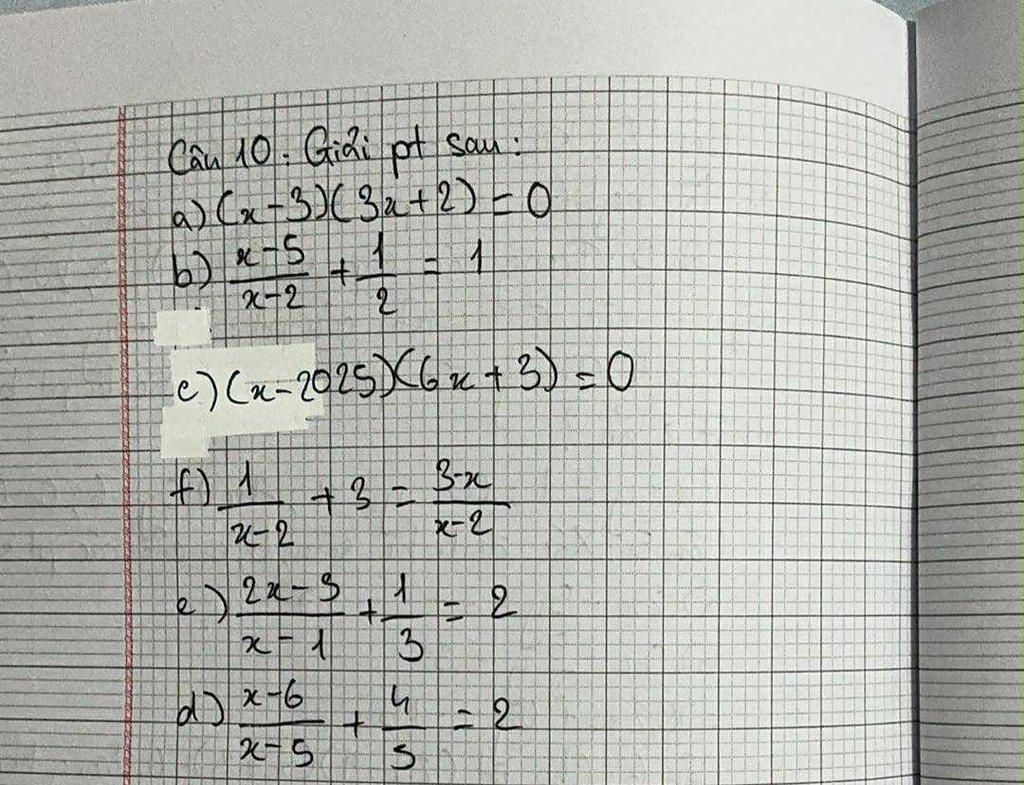 Câu 10. Giải pt sau:
a) (x-3)(3x+2) = 0
b) \frac{x-5}{x-2} + \frac{1}{2} = 1
c) (x-2025)(6x+3) = 0
f) \frac{1}{x-2} + 3 = \frac{3-x}{x-2}
e) \frac{2x-3}{x-1} + \frac{1}{3} = 2
d) \frac{x-6}{x-5} + \frac{4}{5} = 2